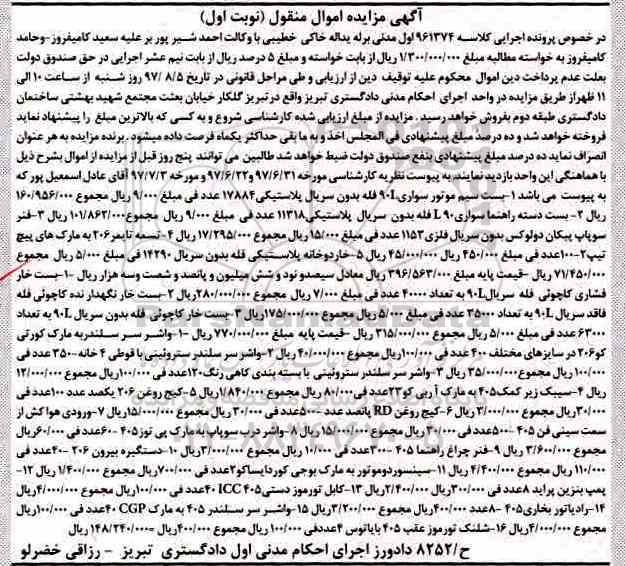 آگهی مزایده اموال منقول (نوبت اول)
در خصوص پرونده اجرایی کلاسه ۹۶۱۳۷۴اول مدنی برله یداله خاکی خطیبی با وکالت احمد شیر پور بر علیه سعید کامیفروز-وحامد
کامیفروز به خواسته مطالبه مبلغ ۱/۳۰۰/۰۰۰/۰۰۰ ریال از بابت خواسته و مبلغ ۵ درصد ریال از بابت نیم عشر اجرایی در حق صندوق دولت
بعلت عدم پرداخت دین اموال محکوم علیه توقیف دین از ارزیابی و طی مراحل قانونی در تاریخ ۹۷/ ۸/۵ روز شنبه از ساعت ۱۰ الی
۱۱ ظهراز طریق مزایده در واحد اجرای احکام مدنی دادگستری تبریز واقع درتبریز گلکار خیابان بعثت مجتمع شهید بهشتی ساختمان
دادگستری طبقه دوم بفروش خواهد رسید . مزایده از مبلغ ارزیابی شده کارشناسی شروع و به کسی که بالاترین مبلغ را پیشنهاد نماید
فروخته خواهد شد و ده درصد مبلغ پیشنهادی فی المجلس اخذ و به ما بقی حداکثر یکماه فرصت داده میشود . برنده مزایده به هر عنوان
انصراف نماید ده درصد مبلغ پیشنهادی بنفع صندوق دولت ضبط خواهد شد طالبین می توانند پنج روز قبل از مزایده از اموال بشرح ذیل
با هماهنگی این واحد بازدید نمایند. به پیوست نظریه کارشناسی مورخه ۹۷/۶/۳۱ و۹۷/۶/۲۲ و مورخه ۹۷/۷/۳ آقای عادل اسمعیل پور که
به پیوست می باشد ۱-بست سیم موتور سواری۹۰L فله بدون سریال پلاستیکی۱۷۸۸۴ عدد فی مبلغ ۹/۰۰۰ ریال مجموع ۱۶۰/۹۵۶/۰۰۰
ریال ۲- بست دسته راهنما سواری۹۰L فله بدون سریال پلاستیکی۱۱۳۱۸عدد فی مبلغ ۹/۰۰۰ ریال مجموع۱۰۱/۸۶۲/۰۰۰ ریال ۳-فنر
سوپاپ پیکان دولوکس بدون سریال فلزی۱۱۵۳ عدد فی مبلغ ۱۵/۰۰۰ ریال مجموع ۱۷/۲۹۵/۰۰۰ ریال ۴-تسمه تایمر۲۰۶ به مارک های پیچ
تیپ۲-۱۰۰عدد فی مبلغ ۴۵۰/۰۰۰ ریال ۴۵/۰۰۰/۰۰۰ ریال ۵-خاردوخانه پلاستیکی فله بدون سریال ۱۴۲۹۰ فی مبلغ ۵/۰۰۰ ریال مجموع
۷۱/۴۵۰/۰۰۰ ریال -قیمت پایه مبلغ ۳۹۶/۵۶۳/۰۰۰ ریال معادل سیصدو نود و شش میلیون و پانصد و شصت وسه هزار ریال -۱-بست خار
فشاری کاچوئی فله سریال۹۰L به تعداد ۴۰۰۰۰ عدد فی مبلغ ۷/۰۰۰ ریال مجموع ۲۸۰/۰۰۰/۰۰۰ریال ۲-بست خار نگهدارنده کاچوئی فله
فاقد سریال ۹۰L به تعداد ۳۵۰۰۰ عدد فی مبلغ ۵/۰۰۰ ریال مجموع ۱۷۵/۰۰۰/۰۰۰ریال ۳-بست خار کاچوئی فله بدون سریال ۹۰L به تعداد
۶۳۰۰۰ عدد فی مبلغ ۵/۰۰۰ ریال مجموع ۳۱۵/۰۰۰/۰۰۰ ریال -قیمت پایه مبلغ ۷۷۰/۰۰۰/۰۰۰ ریال -۱-واشر سر سلندربه مارک کورتی
کو۲۰۶ در سایزهای مختلف ۴۰۰ عدد فی ۱۰۰/۰۰۰ریال مجموع ۴۰/۰۰۰/۰۰۰ ریال ۲-واشر سر سلندر ستروئینی با قوطی ۴ خانه-۳۵۰ عدد فی
۱۰۰/۰۰۰ ریال مجموع۳۵/۰۰۰/۰۰۰ ریال ۳-واشر سر سلندر ستروئینی با بسته بندی کاهی رنگ۱۲۰عدد فی ۱۰۰/۰۰۰ریال مجموع ۱۲/۰۰۰/۰۰۰
ریال ۴-سیبک زیر کمک۴۰۵ به مارک آ ربی کو۲۳عدد فی ۸۰/۰۰۰ ریال مجموع ۱/۸۴۰/۰۰۰ریال ۵-کیج روغن ۲۰۶ یکصد عدد ۱۰۰عدد فی
۳۰/۰۰۰ریال مجموع ۳/۰۰۰/۰۰۰ ریال ۶-کیج روغن RD پانصد عدد -۵۰۰عدد فی ۳۰/۰۰۰ ریال مجموع ۱۵/۰۰۰/۰۰۰ریال ۷-ورودی هوا کش از
سمت سینی فن ۴۰۵ -۵۰۰عدد فی ۳۰/۰۰۰ ریال مجموع ۱۵/۰۰۰/۰۰۰ریال ۸-واشر درب سوپاپ با مارک پی توز ۴۰۵ -۶۰عدد فی ۶۰/۰۰۰ریال
مجموع ۳/۶۰۰/۰۰۰ ریال ۹-فنر چراغ راهنما ۴۰۵ -۳۰۰عدد فی ۱۰/۰۰۰ ریال مجموع ۳/۰۰۰/۰۰۰ریال ۱۰-دستگیره بیرون ۲۰۶ -۴۰عدد فی
۱۱۰/۰۰۰ ریال مجموع ۴/۴۰۰/۰۰۰ ریال ۱۱-سینسوردوموتور به مارک بوجی کوردایساکو۲عدد فی ۷۰۰/۰۰۰ریال مجموع ۱/۴۰۰/۰۰۰ ریال ۱۲-
پمپ بنزین پراید ۸عدد فی ۳۰۰/۰۰۰ریال ۲/۴۰۰/۰۰۰ ریال ۱۳-کابل تورموز دستی۴۰۵ ICC ۴۰عدد فی ۱۰۰/۰۰۰ ریال مجموع ۴/۰۰۰/۰۰۰ریال
۱۴-رادیاتور بخاری۴۰۵ -۸عدد ۴۰۰/۰۰۰ریال مجموع ۳/۲۰۰/۰۰۰ ریال ۱۵-واشر سر سلندر ۴۰۵ به مارک CGP ۴۰عدد فی ۱۰۰/۰۰۰ریال
مجموع ۴/۰۰۰/۰۰۰ریال ۱۶-شلنک تورموز عقب ۴۰۵ بایاتوس ۴عددفی ۱۰۰/۰۰۰ ریال مجموع ۴۰۰/۰۰۰ریال =۱۴۸/۲۴۰/۰۰۰ ریال
ح/۸۲۵۲ دادورز اجرای احکام مدنی اول دادگستری تبریز - رزاقی خضرلو